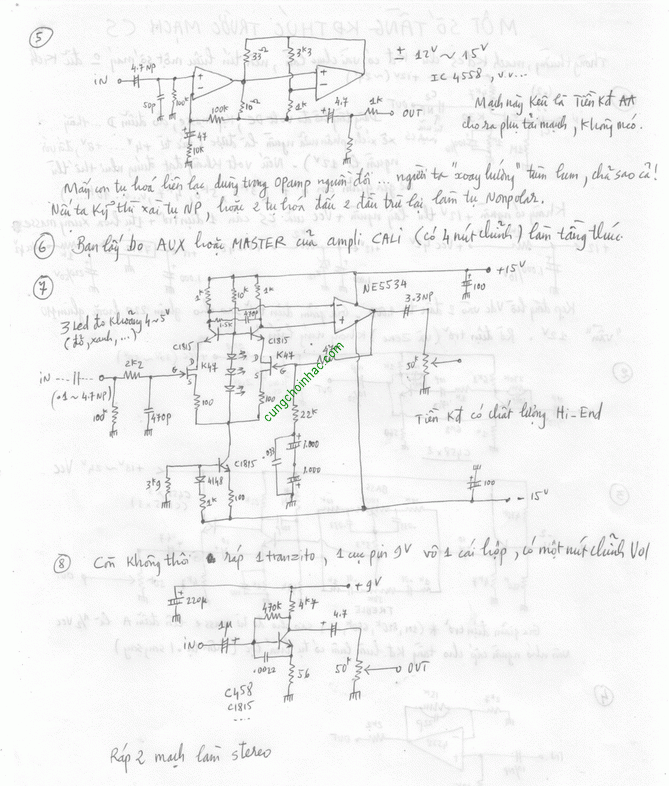 5
33Ω
3k3
± 12V ~ 15V
IC 4558, v.v...
iN
4.7NP
50p
100k
100k
10Ω
1k
4.7
1k
OUT
47
10k
Mạch này kêu là Tiền Kđ AA
cho ra phụ tải mạch, không méo.
Mấy con tụ hoá liên lạc, dùng trong OPamp nguồn đôi ... người ta "xoay hướng" tùm lum, chả sao cả!
Nếu ta kỹ thì xài tụ NP, hoặc 2 tụ hoá đấu 2 đầu trừ lại làm tụ Nonpolar.
6 Bạn lấy bo AUX hoặc MASTER của ampli CALi (có 4 nút chỉnh) làm tầng thúc.
7
1k
10k
1k
NE5534
+15V
100
3 Led đỏ khoảng 4~5V
(đỏ, xanh, ...)
1.5k
470p
3.3NP
C1815
C1815
2k2
K47
K47
D
G
S
D
G
S
iN
(.1 ~ 4.7NP)
100k
470p
100
100
22k
50k
cungchoinhac.com
Tiền Kđ có chất lượng Hi-End
.033
1.000
1.000
C1815
3k9
4148
1k
100
100
- 15V
8 Còn không thôi ráp 1 tranzito, 1 cục pin 9V vô 1 cái hộp, có một nút chỉnh Vol
+9V
220µ
470k
4k7
1µ
4.7
iN
.0022
56
50k
OUT
C458
C1815
....
Ráp 2 mạch làm stereo